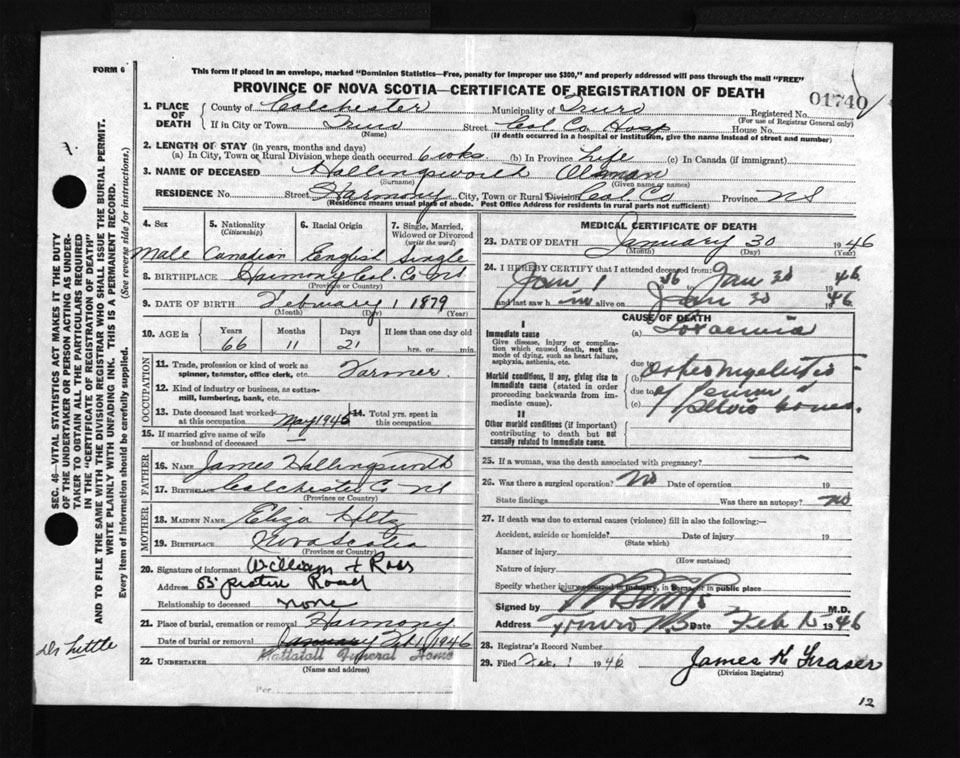 FORM 6
This form if placed in an envelope, marked "Dominion Statistics—Free, penalty for improper use $300," and properly addressed will pass through the mail "FREE"
PROVINCE OF NOVA SCOTIA—CERTIFICATE OF REGISTRATION OF DEATH
01740
1. PLACE OF DEATH
County of Colchester Municipality of Truro Registered No.
(For use of Registrar General only)
If in City or Town Truro Street Col. Co Hosp House No.
(Name) (If death occurred in a hospital or institution, give the name instead of street and number)
2. LENGTH OF STAY (in years, months and days)
(a) In City, Town or Rural Division where death occurred 6 wks (b) In Province Life (c) In Canada (if immigrant)
3. NAME OF DECEASED Hallingsworth Olsman
(Surname) (Given name or names)
RESIDENCE No. Street Harmony City, Town or Rural Division Col. Co Province NS
(Residence means usual place of abode. Post Office Address for residents in rural parts not sufficient)
4. Sex 5. Nationality (Citizenship) 6. Racial Origin 7. Single, Married, Widowed or Divorced (write the word)
Male Canadian English Single
8. BIRTHPLACE Harmony Col. Co NS
(Province or Country)
9. DATE OF BIRTH February 1 1879
(Month) (Day) (Year)
10. AGE in Years Months Days If less than one day old
66 11 21 hrs. or min.
OCCUPATION
11. Trade, profession or kind of work as spinner, teamster, office clerk, etc. Farmer
12. Kind of industry or business, as cotton-mill, lumbering, bank, etc.
13. Date deceased last worked at this occupation May 1945 14. Total yrs. spent in this occupation
15. If married give name of wife or husband of deceased
FATHER
16. NAME James Hallingsworth
17. BIRTHPLACE Colchester Co NS
(Province or Country)
MOTHER
18. MAIDEN NAME Eliza
19. BIRTHPLACE Nova Scotia
(Province or Country)
20. Signature of informant William Ross
Address 55 Road
Relationship to deceased none
21. Place of burial, cremation or removal Harmony
Date of burial or removal January Feb 1 1946
22. UNDERTAKER Mattatall Funeral Home
(Name and address)
Per
MEDICAL CERTIFICATE OF DEATH
23. DATE OF DEATH January 30 1946
(Month) (Day) (Year)
24. I HEREBY CERTIFY that I attended deceased from:
Jan 1 1946 to Jan 30 1946
and last saw him alive on Jan 30 1946
CAUSE OF DEATH
I
Immediate cause
Give disease, injury or complication which caused death, not the mode of dying, such as heart failure, asphyxia, asthenia, etc.
(a) Toxaemia
due to
Morbid conditions, if any, giving rise to immediate cause (stated in order proceeding backwards from immediate cause).
(b) Osteomyelitis
due to of Femur &
(c) pelvic bones.
II
Other morbid conditions (if important) contributing to death but not causally related to immediate cause.
25. If a woman, was the death associated with pregnancy?
26. Was there a surgical operation? No Date of operation 19
State findings Was there an autopsy? No
27. If death was due to external causes (violence) fill in also the following:—
Accident, suicide or homicide? Date of injury 19
(State which)
Manner of injury
(How sustained)
Nature of injury
Specify whether injury occurred in industry, in home, or in public place
Signed by M.D.
Address Truro NS Date Feb 1 1946
28. Registrar's Record Number
29. Filed Feb. 1 1946 James K Fraser
(Division Registrar)
12
SEC. 46—VITAL STATISTICS ACT MAKES IT THE DUTY
OF THE UNDERTAKER OR PERSON ACTING AS UNDER-
TAKER TO OBTAIN ALL THE PARTICULARS REQUIRED
IN THE "CERTIFICATE OF REGISTRATION OF DEATH"
AND TO FILE THE SAME WITH THE DIVISION REGISTRAR WHO SHALL ISSUE THE BURIAL PERMIT.
WRITE PLAINLY WITH UNFADING INK. THIS IS A PERMANENT RECORD.
Every item of Information should be carefully supplied. (See reverse side for instructions.)
Dr Little